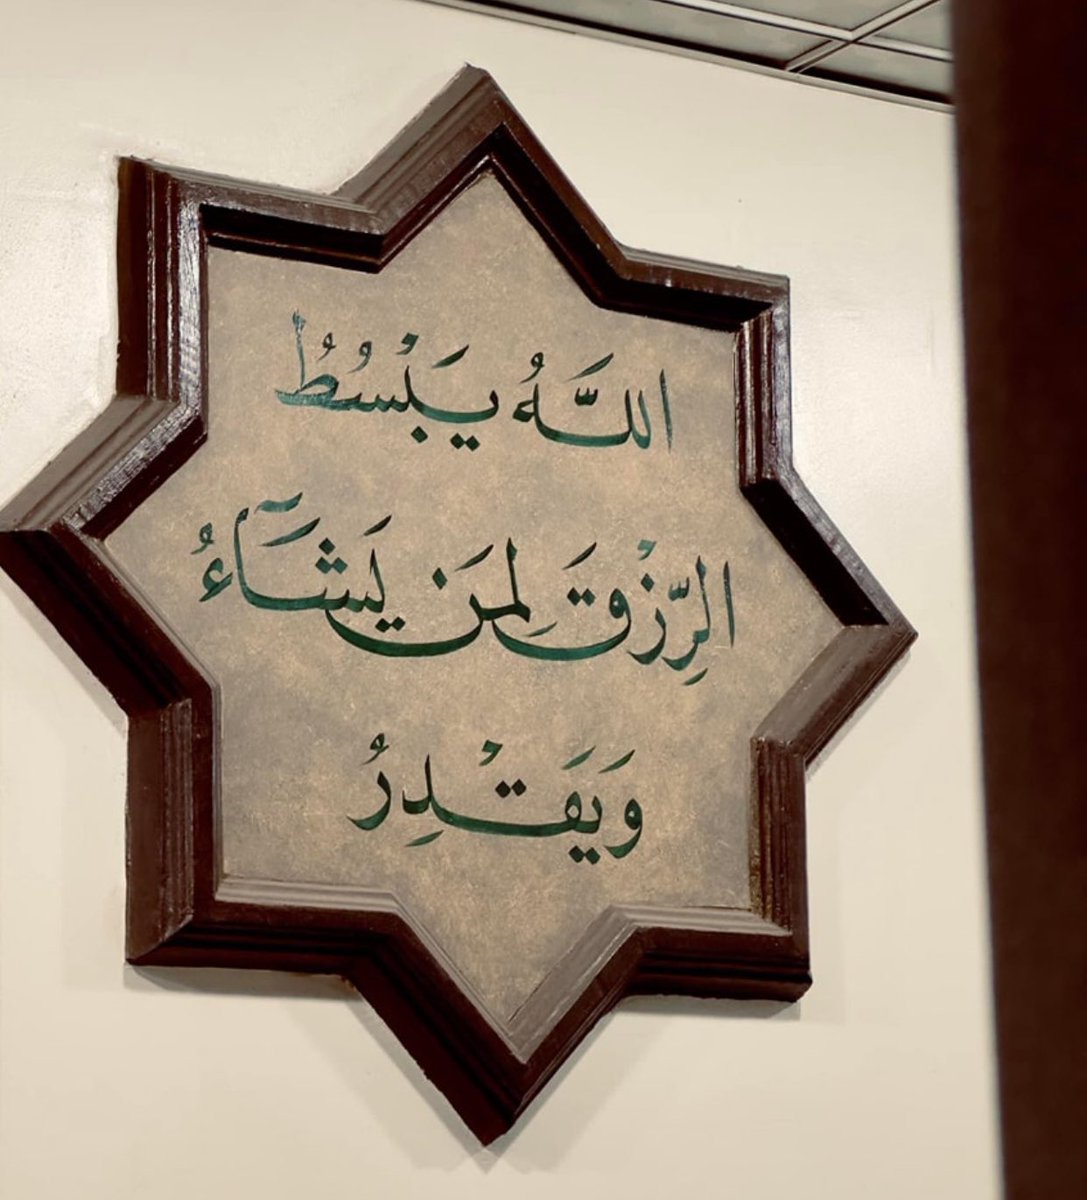 اللَّهُ يَبْسُطُ
الرِّزْقَ لِمَن يَشَآءُ
وَيَقْدِرُ